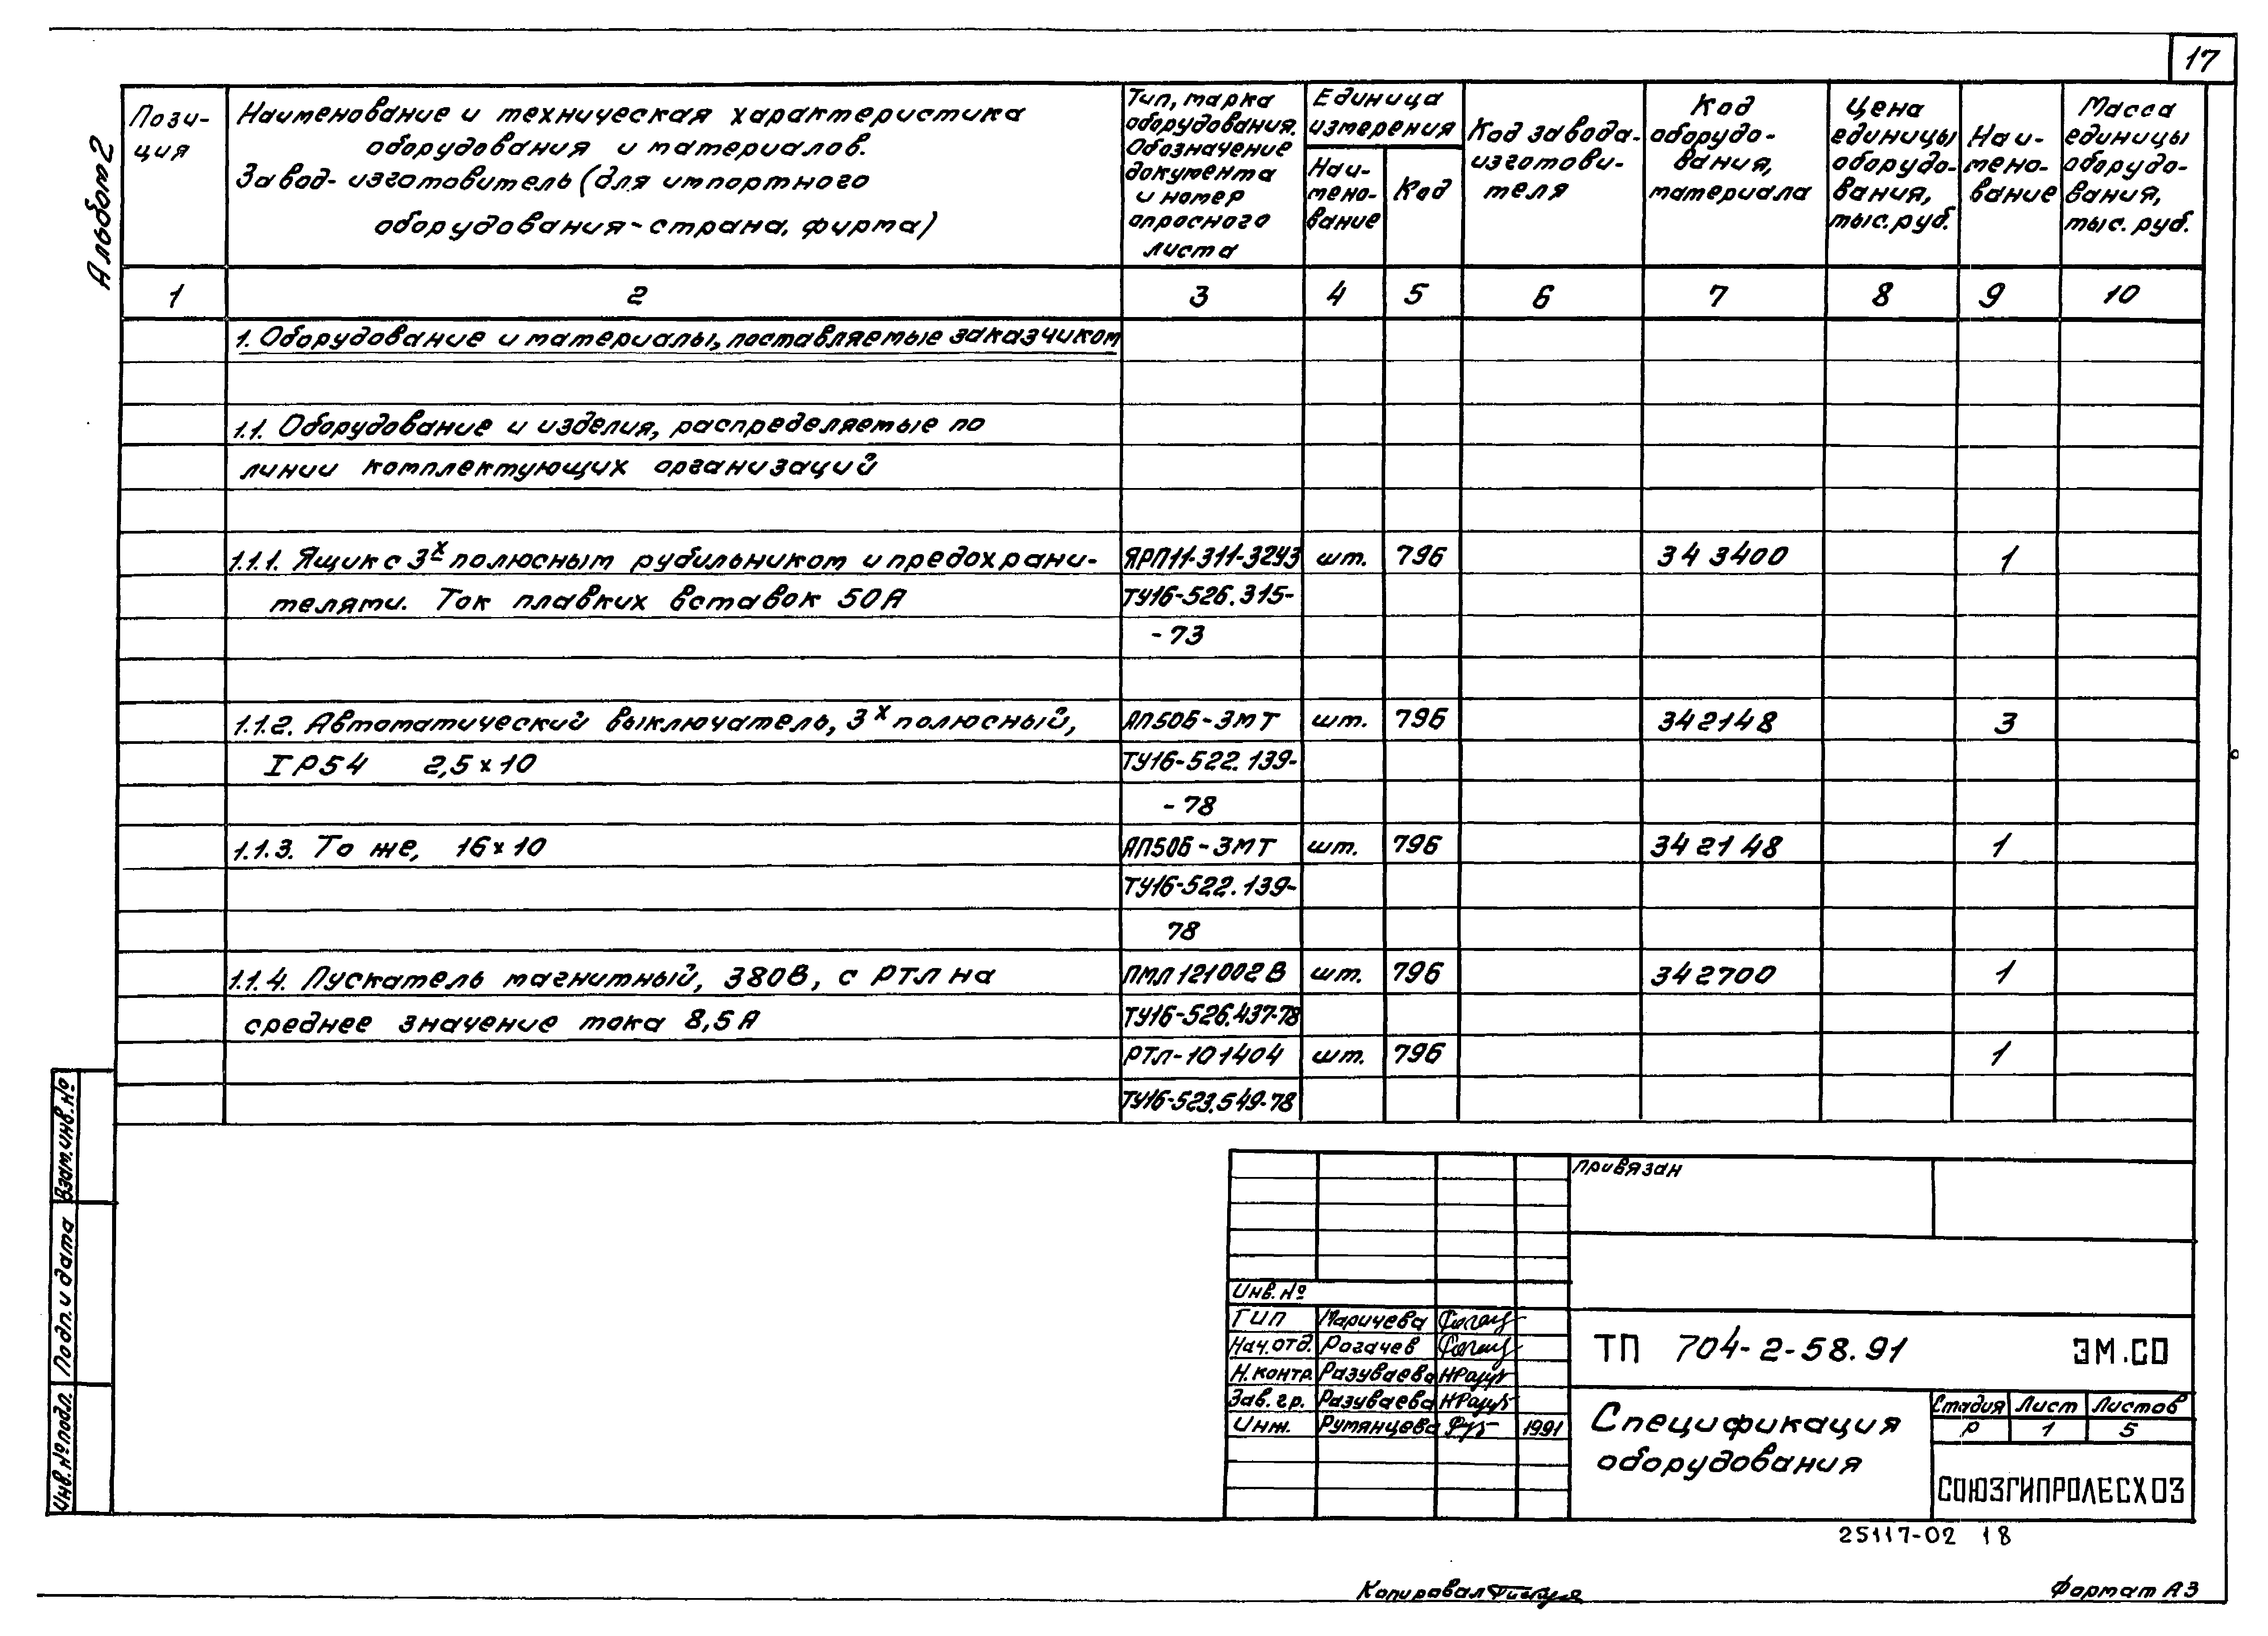 17
Альбом 2
Пози-
ция
Наименование и техническая характеристика
оборудования и материалов.
Завод-изготовитель (для импортного
оборудования-страна, фирма)
Тип, марка
оборудования.
Обозначение
документа
и номер
опросного
листа
Единица
измерения
Наи-
мено-
вание
Код
Код завода-
изготови-
теля
Код
оборудо-
вания,
материала
Цена
единицы
оборудо-
вания,
тыс. руб.
Наи-
мено-
вание
Масса
единицы
оборудо-
вания,
тыс. руб.
1 2 3 4 5 6 7 8 9 10
1. Оборудование и материалы, поставляемые заказчиком
1.1. Оборудование и изделия, распределяемые по
линии комплектующих организаций
1.1.1. Ящик с 3х полюсным рубильником и предохрани- ЯРП11-311-32У3 шт. 796 343400 1
телями. Ток плавких вставок 50А ТУ16-526.315-
-73
1.1.2. Автоматический выключатель, 3х полюсный, АП50Б-3МТ шт. 796 342148 3
IP54 2,5×10 ТУ16-522.139-
-78
1.1.3. То же, 16×10 АП50Б-3МТ шт. 796 342148 1
ТУ16-522.139-
78
1.1.4. Пускатель магнитный, 380В, с РТЛ на ПМЛ121002В шт. 796 342700 1
среднее значение тока 8,5А ТУ16-526.437-78
РТЛ-101404 шт. 796 1
ТУ16-523.549-78
Взам. инв. №
Подп. и дата
Инв. № подл.
привязан
Инв. №
ГИП Маричева
Нач. отд. Рогачев
Н. контр. Разуваева
Зав. гр. Разуваева
Инж. Румянцева 1991
ТП 704-2-58.91 ЭМ.СО
Спецификация
оборудования
Стадия Лист Листов
Р 1 5
СОЮЗГИПРОЛЕСХОЗ
25117-02 18
Копировал
Формат А3